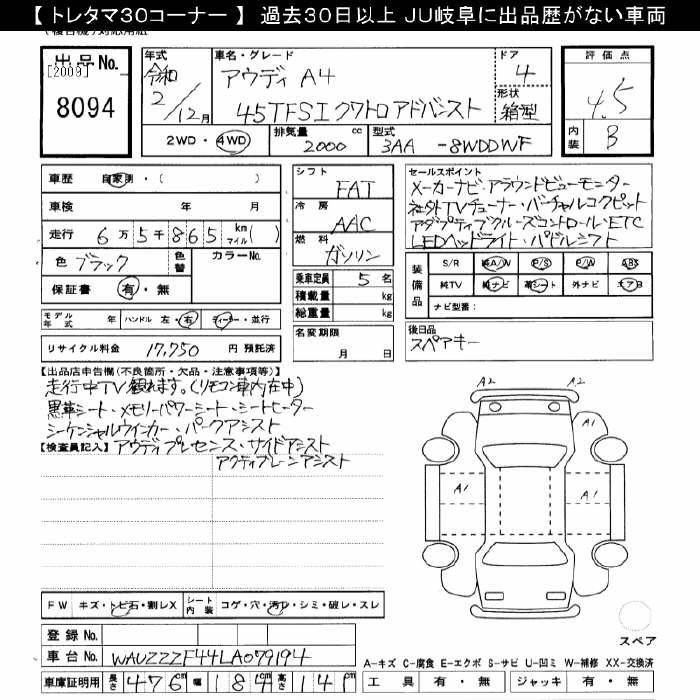 【トレタマ30コーナー】 過去30日以上 JU岐阜に出品歴がない車両
(複合機)対応用紙
出品No.
[2009]
8094
年式 令和 2/12月
車名・グレード
アウディ A4
45TFSIクワトロアドバンスト
ドア 4
形状 箱型
評価点 4.5
内装 B
2WD・4WD
排気量 2000 cc
型式 3AA -8WDDWF
車歴 自家用・( )
車検 年 月
走行 6万5千865 km マイル( )
色 ブラック 色替 カラーNo.
保証書 有・無
モデル年式 年 ハンドル 左・右 ディーラー・並行
リサイクル料金 17,750 円 預託済
シフト FAT
冷房 AAC
燃料 ガソリン
乗車定員 5名
積載量 kg
総重量 kg
名変期限
月 日
セールスポイント
メーカーナビ・アラウンドビューモニター
社外TVチューナー・バーチャルコクピット
アダプティブクルーズコントロール・ETC
LEDヘッドライト・パドルシフト
装備品
S/R 純A/W P/S P/W ABS
純TV 純ナビ 革シート 外ナビ エアB
ナビ型番:
後日品
スペアキー
【出品店申告欄(不良箇所・欠品・注意事項等)】
走行中TV観れます。(リモコン車内在中)
黒革シート・メモリーパワーシート・シートヒーター
シーケンシャルウインカー・パークアシスト
【検査員記入】アウディプレセンス・サイドアシスト
アクティブレーンアシスト
A2 A2
A1
A1 A1
FW キズ・トビ石・割レX シート内装 コゲ・穴・汚レ・シミ・破レ・スレ
登録No.
車台No. WAUZZZF44LA079194
車庫証明用 長さ 476cm 幅 184cm 高さ 141cm
スペア
A-キズ C-腐食 E-エクボ S-サビ U-凹ミ W-補修 XX-交換済
工具 有・無 ジャッキ 有・無